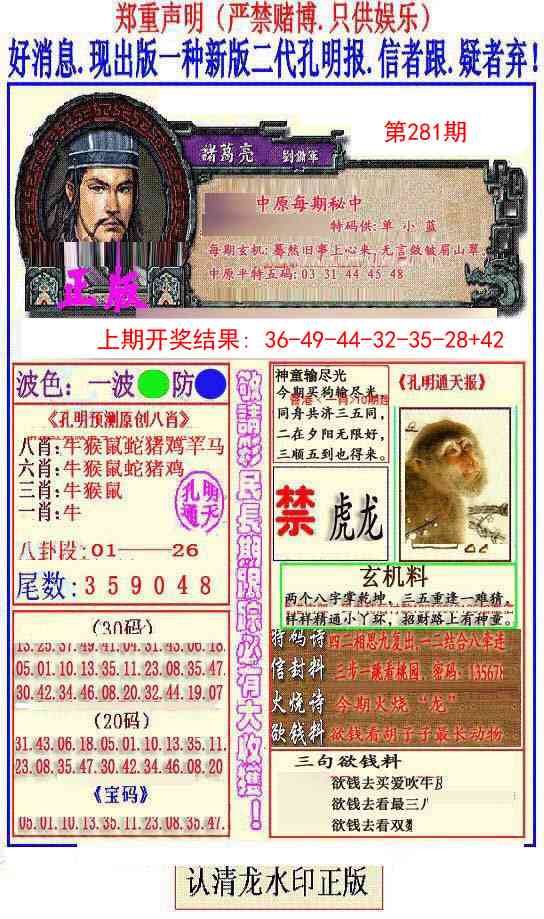 郑重声明（严禁赌博.只供娱乐）
好消息.现出版一种新版二代孔明报.信者跟.疑者弃!
第281期
諸葛亮
中原每期秘中
特码供:单小蓝
每期玄机:蓦然旧事上心来,无言敛皱眉山翠.
中原平特五码:03 31 44 45 48
正版
上期开奖结果: 36-49-44-32-35-28+42
波色：一波 防
《孔明预测原创八肖》
八肖:牛猴鼠蛇猪鸡羊马
六肖:牛猴鼠蛇猪鸡
三肖:牛猴鼠
一肖:牛
孔明
通天
八卦段:01——26
尾数:359048
(30码)
13.25.37.49.41.04.31.43.06.18.
05.01.10.13.35.11.23.08.35.47.
30.42.34.46.08.20.32.44.19.07
(20码)
31.43.06.18.05.01.10.13.35.11.
23.08.35.47.30.42.34.46.08.20
《宝码》
05.01.10.13.35.11.23.08.35.47.
敬請彩民長期跟踪必有大收獲！
神童输尽光
今期买狗输尽光，
同舟共济三五同，
二在夕阳无限好，
三顺五到也得来。
《孔明通天报》
禁
虎龙
玄机料
两个八字掌乾坤，三五重逢一难猜，
样样精通小丫环，招财路上有神童。
特码诗 四二相思九复出,一三结合八牵连
信封料 三步一跳看桃园，密码：135678
火烧诗 今期火烧“龙”
欲钱料 欲钱看胡子子最长动物
三句欲钱料
欲钱去买爱吹牛
欲钱去看最三
欲钱去看双
认清龙水印正版